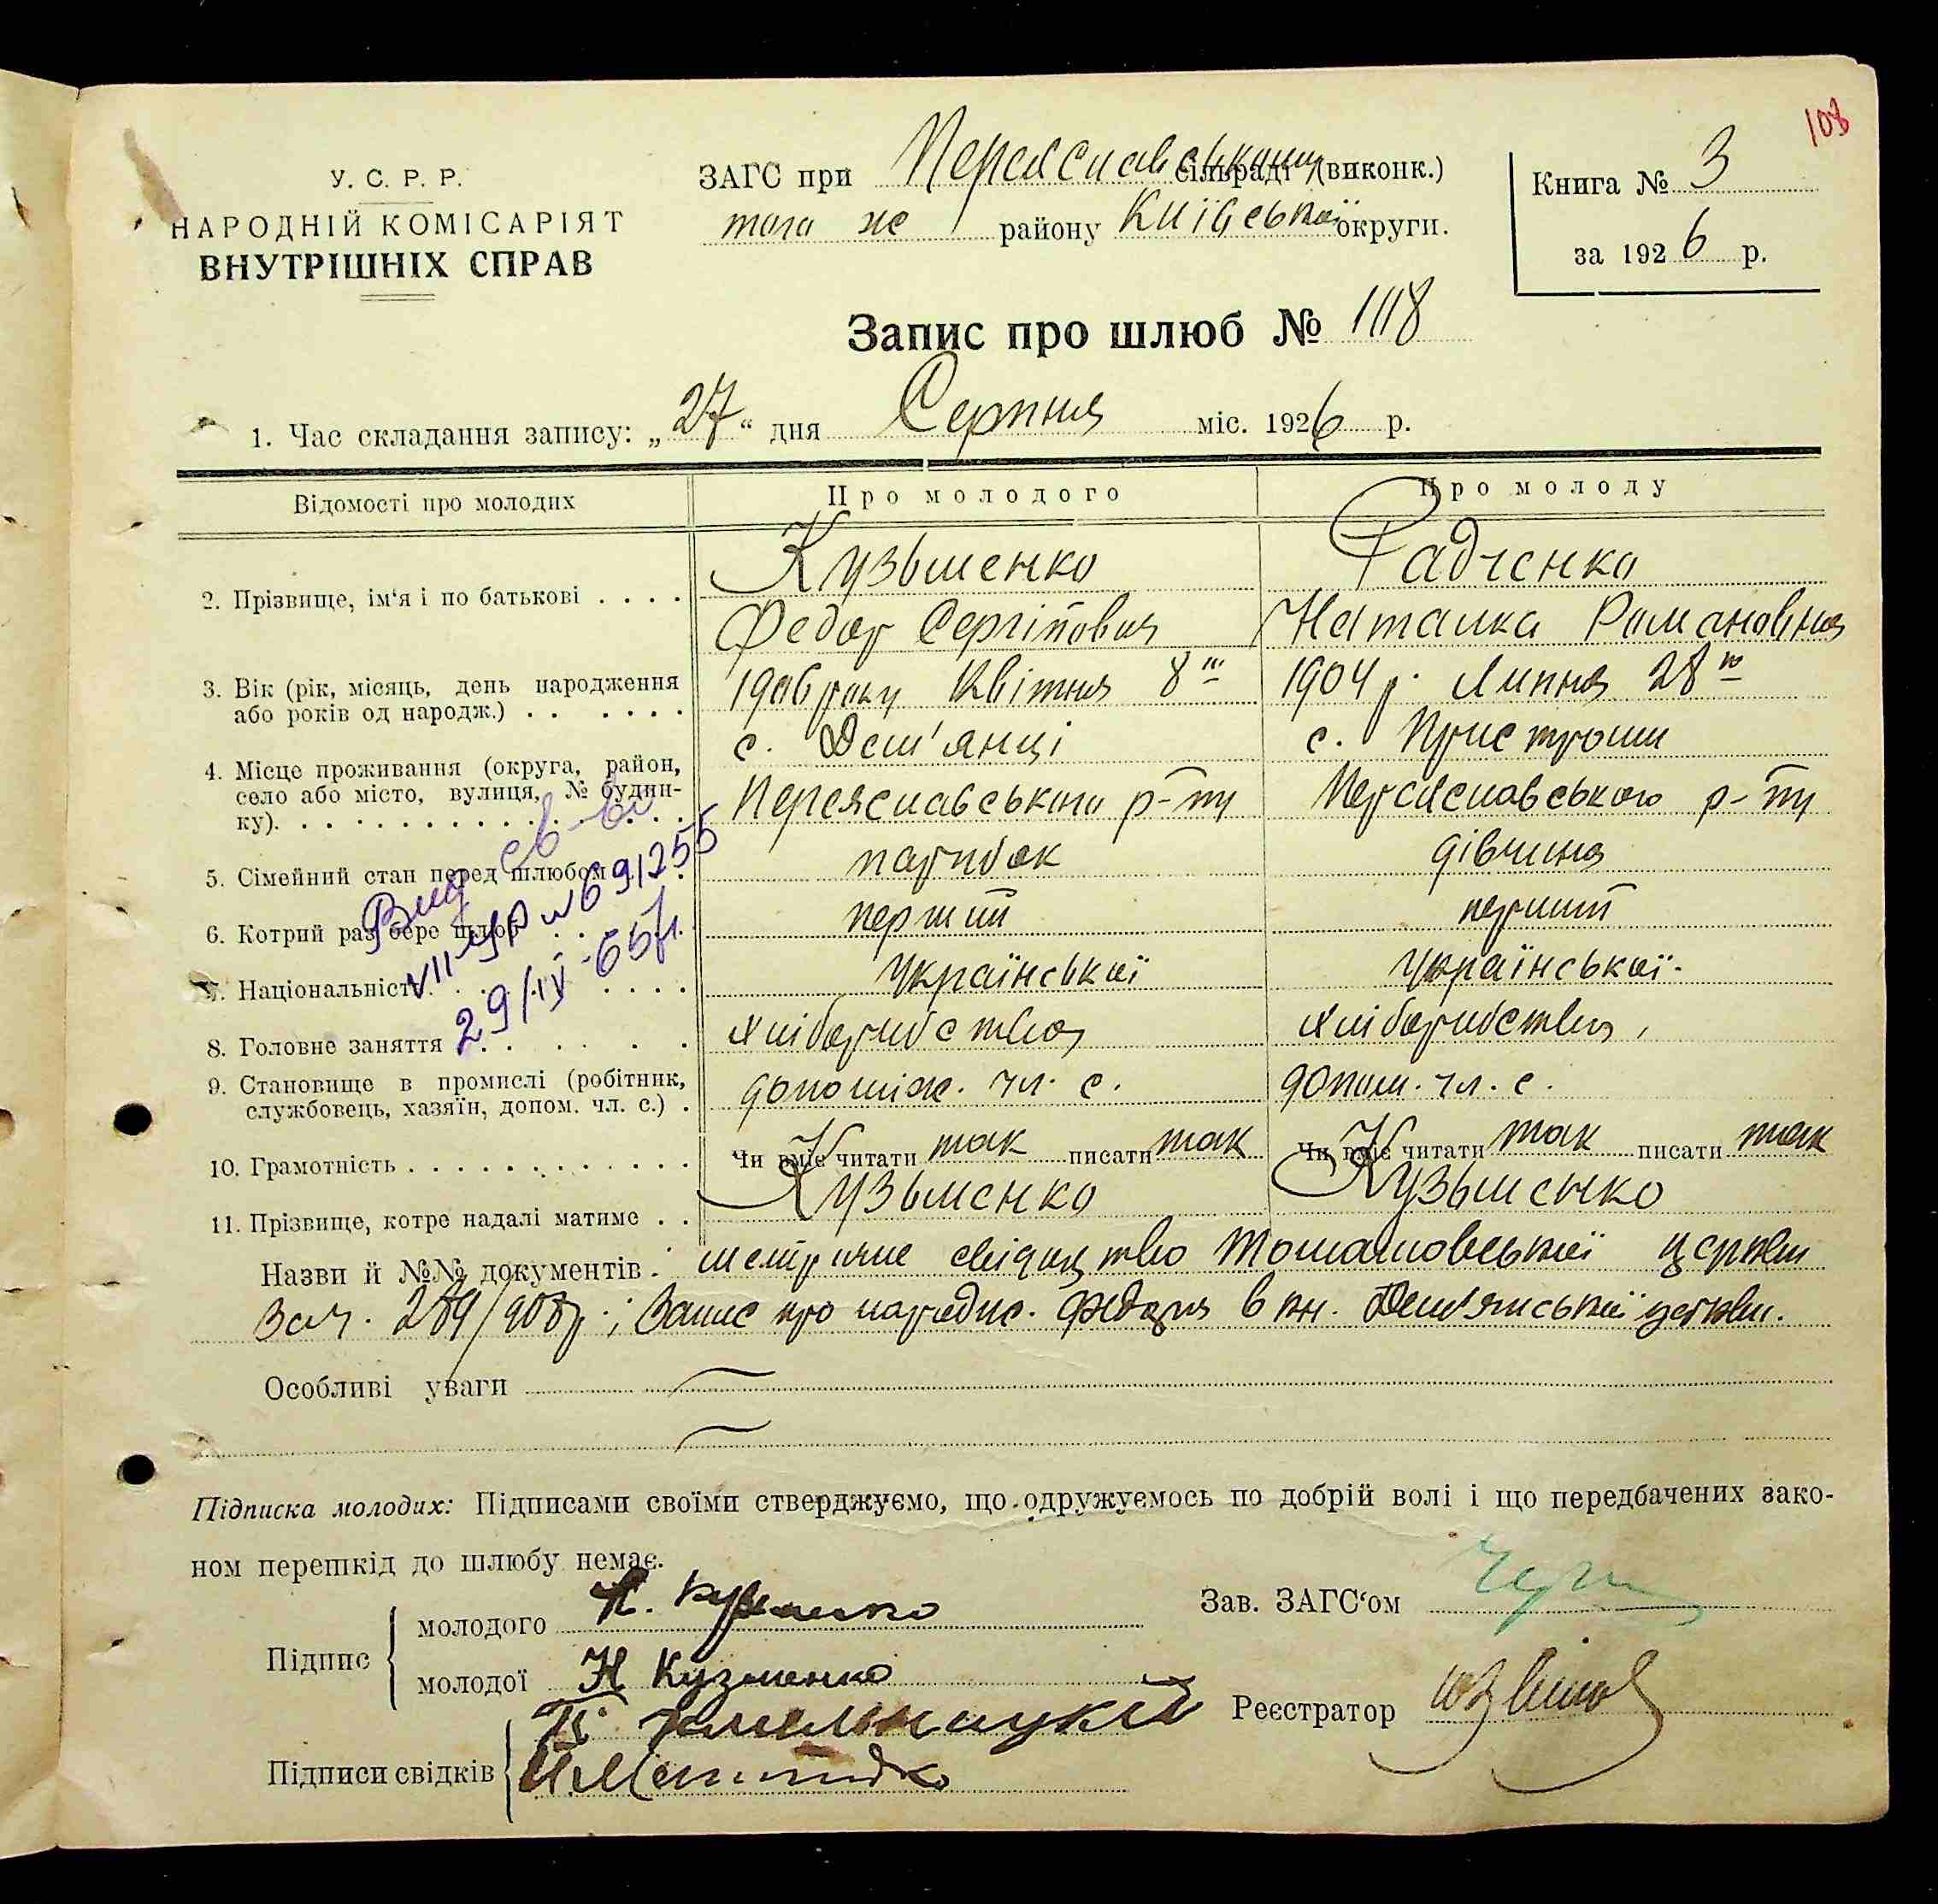 108
У. С. Р. Р.
НАРОДНІЙ КОМІСАРІЯТ
ВНУТРІШНІХ СПРАВ
ЗАГС при Переяславськоми сільраді (виконк.)
того же району Київської округи.
Книга № 3
за 1926 р.
Запис про шлюб № 118
1. Час складання запису: „27“ дня Серпня міс. 1926 р.
Відомості про молодих
Про молодого
Про молоду
2. Прізвище, ім'я і по батькові . . . .
Кузьменко
Федор Сергійович
Радченко
Наталка Романовна
3. Вік (рік, місяць, день народження
або років од народж.) . . . . . .
1906 року Квітня 8го
1904 р. Липня 28го
4. Місце проживання (округа, район,
село або місто, вулиця, № будин-
ку). . . . . . . . . . . . . . .
с. Дем'янці
Переяславського р-ну
с. Пристроми
Переяславського р-ну
5. Сімейний стан перед шлюбом . . .
парубок
дівчина
6. Котрий раз бере шлюб . . . .
перший
перший
7. Національність . . . . . . .
Української
Української.
8. Головне заняття . . . . . .
хліборобство
хліборобство,
9. Становище в промислі (робітник,
службовець, хазяїн, допом. чл. с.) .
допоміж. чл. с.
допом. чл. с.
10. Грамотність . . . . . . . . . . . .
Чи вміє читати так писати так
Чи вміє читати так писати так
11. Прізвище, котре надалі матиме . .
Кузьменко
Кузьменко
Вид св-во
VII-УР № 691255
29/IV-65р.
Назви й №№ документів: метричне свідоцтво церкви
за ч. 289/908р.; Запис про народж. Федора в кн. Дем'янської церкви.
Особливі уваги
Підписка молодих: Підписами своїми стверджуємо, що одружуємось по добрій волі і що передбачених зако-
ном перешкід до шлюбу немає.
Підпис
молодого Кузменко
молодої Н Кузменко
Підписи свідків
Зав. ЗАГС‘ом
Реєстратор